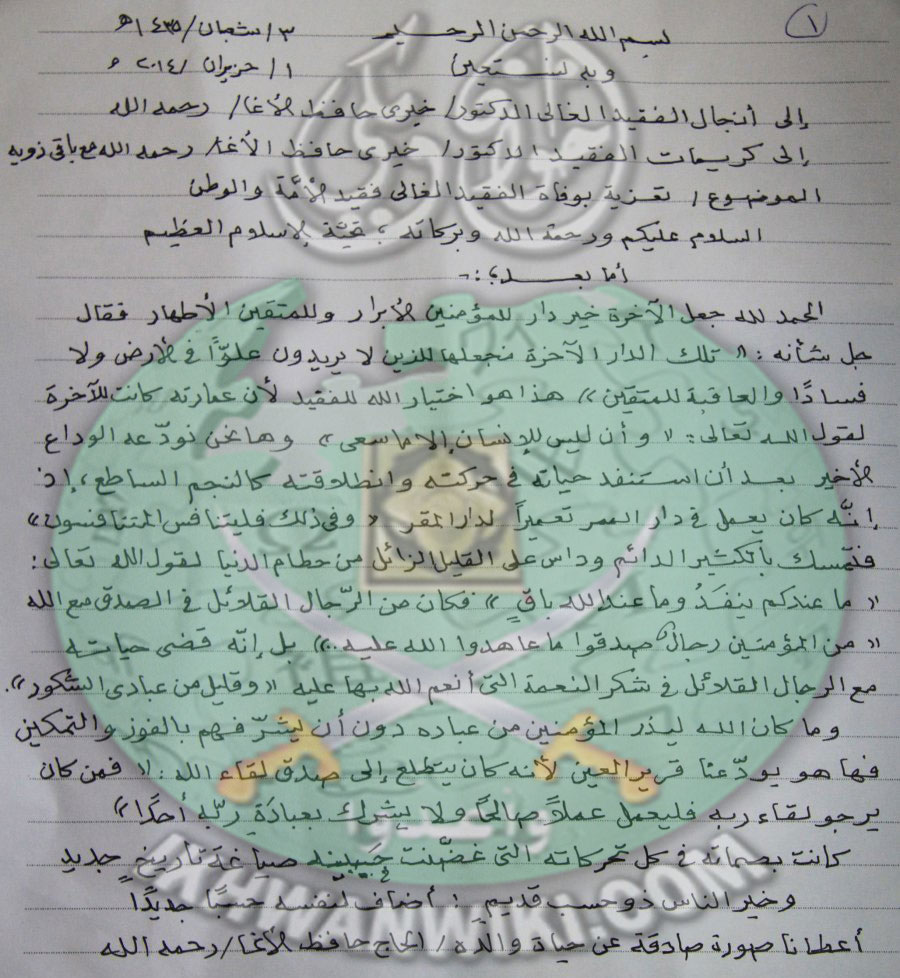 ١
بسم الله الرحمن الرحيم ٣/شعبان/١٤٣٥هـ
وبه نستعين ١/حزيران/٢٠١٤م
إلى أنجال الفقيد الغالى الدكتور/ خيرى حافظ الأغا/ رحمه الله
إلى كريمات الفقيد الدكتور/ خيرى حافظ الأغا/ رحمه الله مع باقى ذويه
الموضوع/ تعزية بوفاة الفقيد الغالى فقيد الأمّة والوطن
السلام عليكم ورحمة الله وبركاته ؛ تحيّة الإسلام العظيم
أما بعــد؛:-
الحمد لله جعل الآخرة خير دار للمؤمنين الأبرار وللمتقين الأطهار فقال
جل شأنه: « تلك الدار الآخرة نجعلها للذين لا يريدون علوًّا فى الأرض ولا
فسادًا والعاقبة للمتقين» هذا هو اختيار الله للفقيد لأن عمارته كانت للآخرة
لقول الله تعالى: « وأن ليس للإنسان إلا ما سعى» وها نحن نودّعه الوداع
الأخير بعد أن استنفد حياته فى حركته وانطلاقته كالنجم الساطع، إذ
إنّه كان يعمل فى دار الممر تعميراً لدار المقر « وفى ذلك فليتنافس المتنافسون»
فتمسك بالكثير الدائم وداس على القليل الزائل من حطام الدنيا لقول الله تعالى:
« ما عندكم ينفَدُ وما عند الله باقٍ » فكان من الرّجال القلائل فى الصدق مع الله
« من المؤمنين رجالٌ صدقوا ما عاهدوا الله عليه..» بل إنّه قضى حياتـه
مع الرجال القلائل فى شكر النعمة التى أنعم الله بها عليه « وقليل من عبادى الشكور».
وما كان الله ليذر المؤمنين من عباده دون أن يشرّفهم بالفوز والتمكين
فها هو يودّعنا قرير العين لأنه كان يتطلع إلى صدق لقاء الله: « فمن كان
يرجو لقاء ربه فليعمل عملاً صالحًا ولا يشرك بعبادَةِ ربّه أحدًا»
كانت بصماته فى كل تحركاته التى غضّنت جبينه فى صياغة تاريخٍ جديد
وخير الناس ذو حسب قديمٍ : أضاف لنفسه حسبًا جديدًا
أعطانا صورة صادقة عن حياة والده/ الحاج حافظ الأغا/ رحمه الله
إخوان ويكي
وأعدوا
IKHWANWIKI.COM